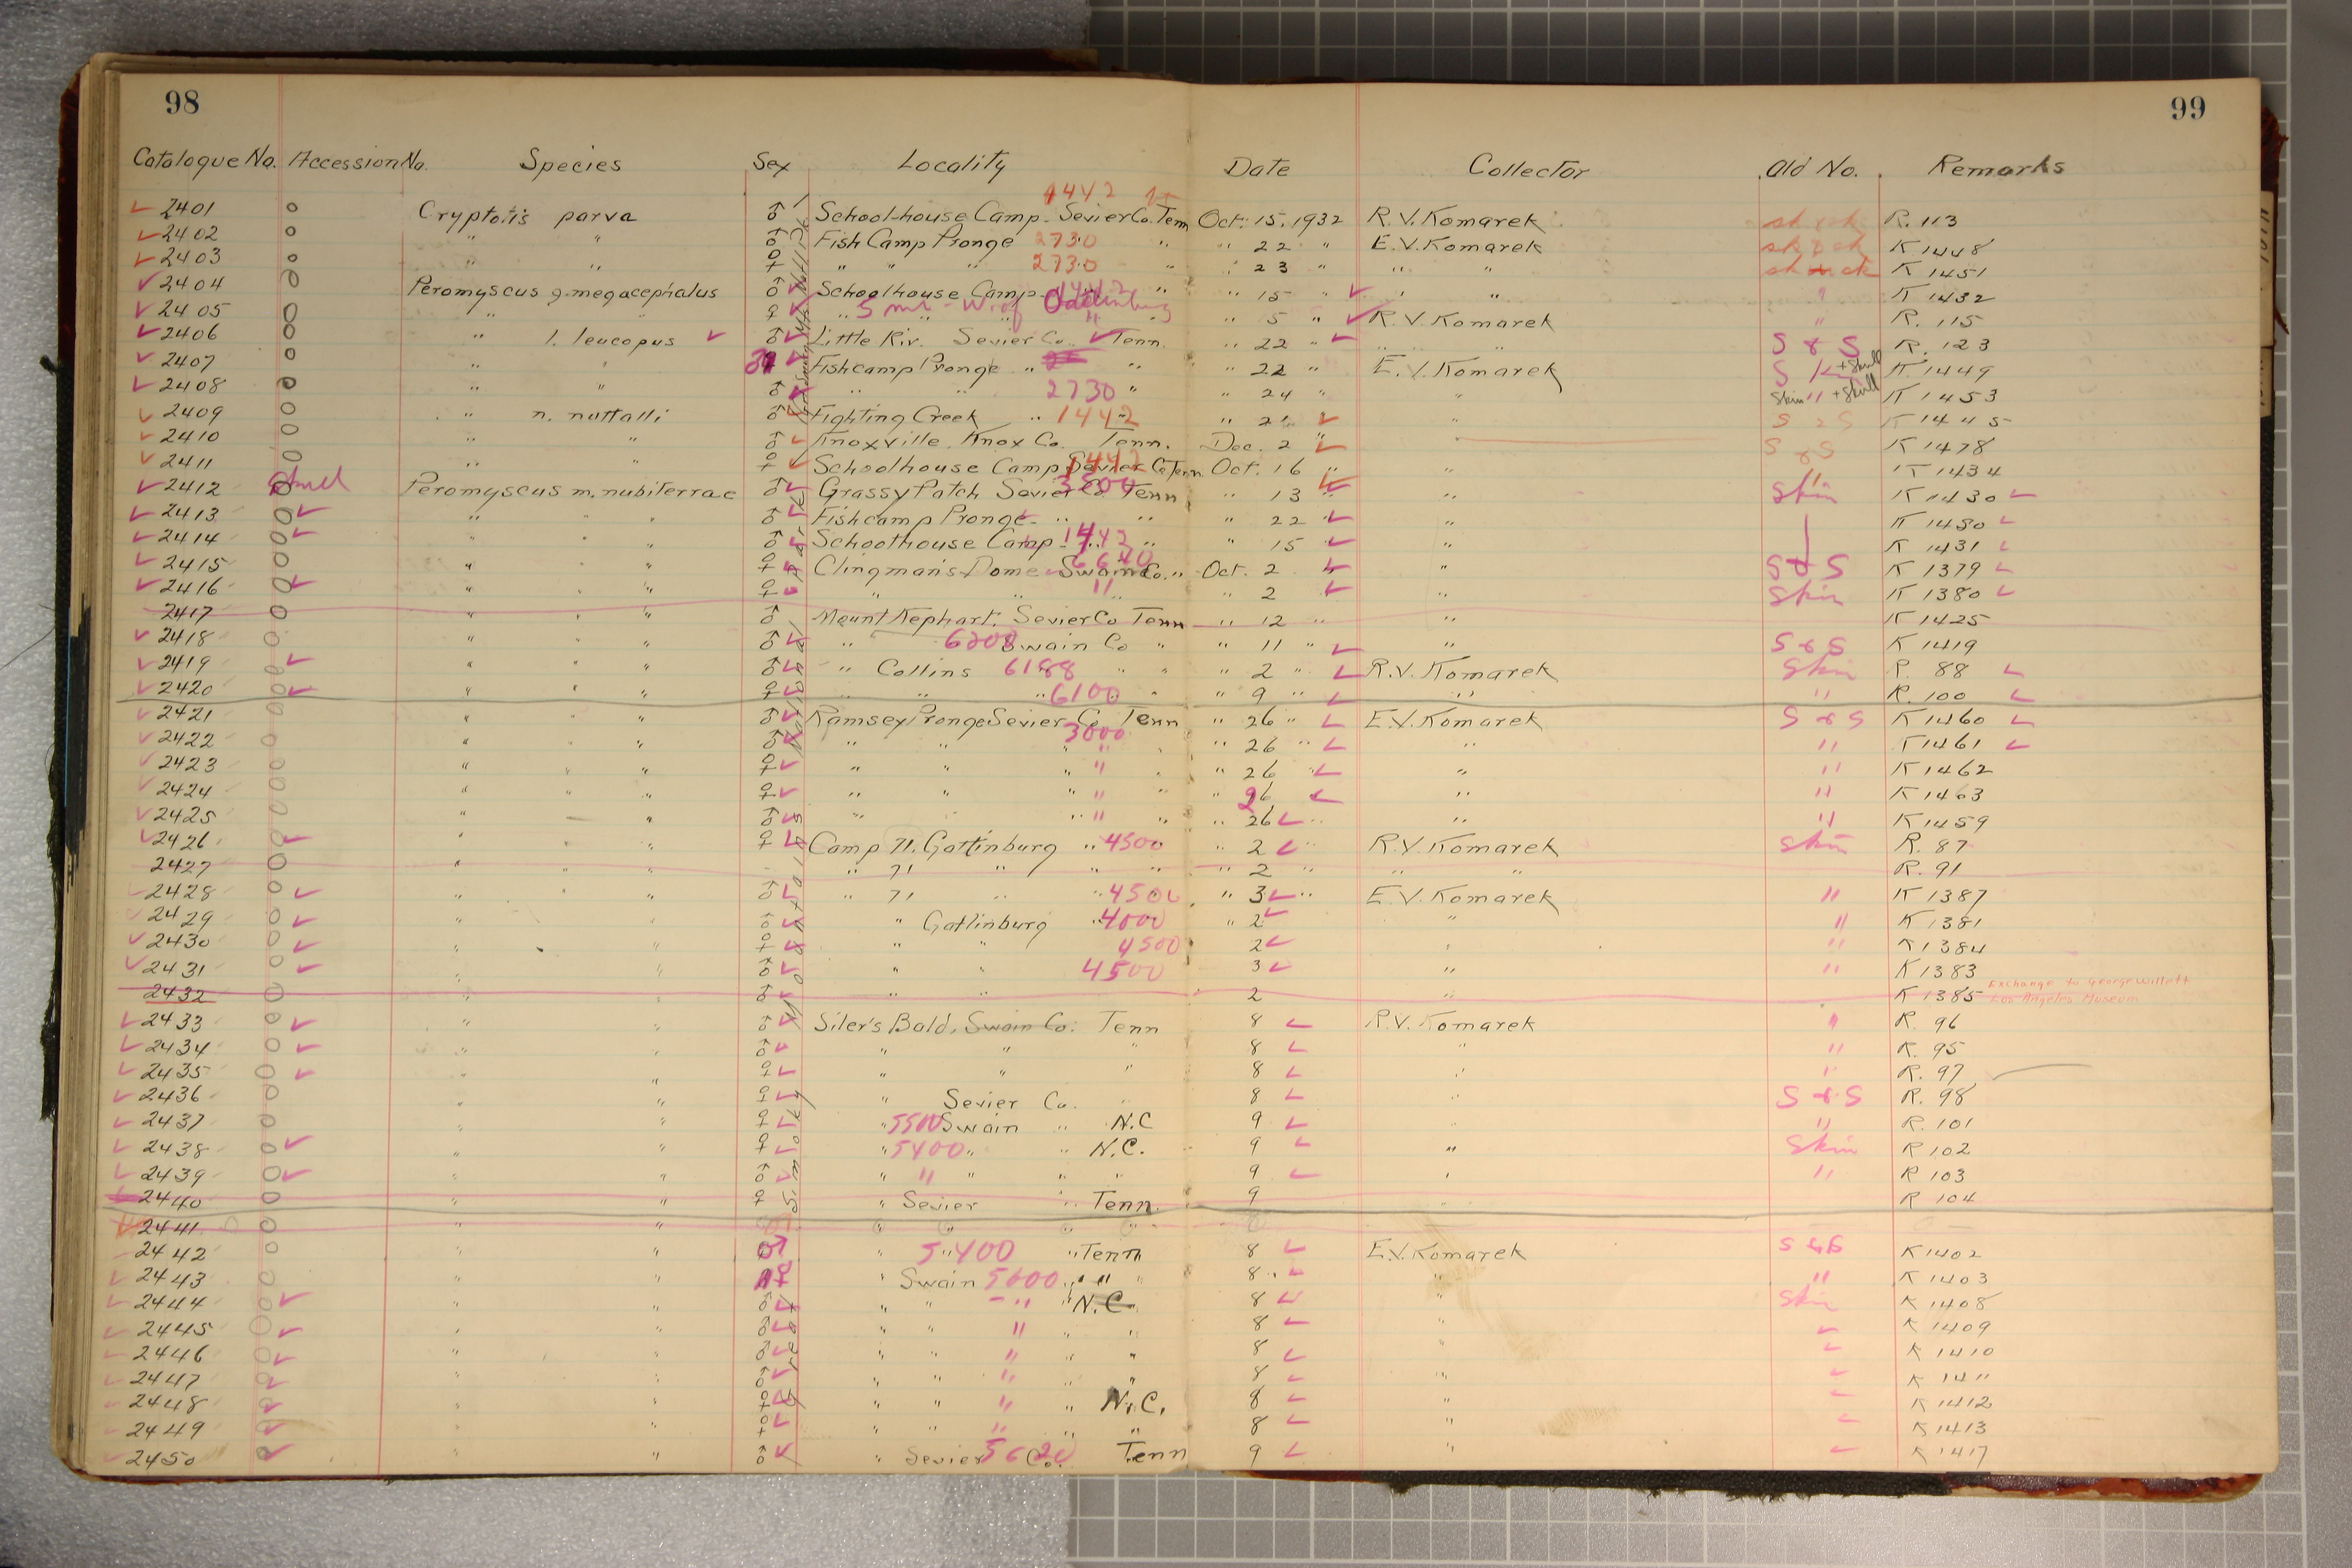 98
99
Catalogue No. Accession No. Species Sex Locality Date Collector Old No. Remarks
1442
2401 0 Cryptotis parva ♂ School-house Camp. Sevier Co. Tenn Oct. 15, 1932 R.V. Komarek R. 113
2402 0 " " ♂ Fish Camp Pronge 2730 " " 22 " E.V. Komarek K 1448
2403 0 " " ♀ " " " 2730 " " 23 " " " K 1451
2404 0 Peromyscus g. megacephalus ♂ Schoolhouse Camp " " 15 " " " " K 1432
2405 0 " " ♀ " 5 mi - W. of Gatlinburg " 5 " R.V. Komarek " R. 115
2406 0 " l. leucopus ♂ Little Riv. Sevier Co. Tenn. " 22 " " " S & S R. 123
2407 0 " " Fishcamp Pronge " " " 22 " E.V. Komarek S K + Skull K 1449
2408 0 " " ♂ " 2730 " " 24 " " Skin " + Skull K 1453
2409 0 " n. nuttalli ♂ Fighting Creek " 1442 " 21 " S & S K 1445
2410 0 " " ♂ Knoxville, Knox Co. Tenn. Dec. 2 " " S & S K 1478
2411 0 " " ♀ Schoolhouse Camp 1442 Sevier Co Tenn. Oct. 16 " " " K 1434
2412 0 Peromyscus m. nubiterrae ♂ Grassy Patch Sevier Co 3500 Tenn " 13 " " Skin K 1430
2413 0 " " " ♂ Fishcamp Pronge " " " 22 " " K 1450
2414 0 " " " ♂ Schoolhouse Camp 1442 " " 15 " K 1431
2415 0 " " " ♀ Clingman's Dome Swain Co. " Oct. 2 " " S & S K 1379
2416 0 " " " ♀ " " " " 2 " Skin K 1380
2417 0 " " ♂ Mount Kephart. Sevier Co Tenn " 12 " " K 1425
2418 0 " " " ♂ " 6200 Swain Co " " 11 " " S & S K 1419
2419 0 " " " ♂ " Collins 6188 " " " 2 " R.V. Komarek Skin R. 88
2420 0 " " " ♀ " " " 6100 " " 9 " " " R. 100
2421 0 " " " ♂ Ramsey Pronge Sevier Co Tenn " 26 " E.V. Komarek S & S K 1460
2422 0 " " " ♂ " " 3000 " " " 26 " " " K 1461
2423 0 " " " ♀ " " " " " " 26 " " K 1462
2424 0 " " " ♀ " " " " " " 26 " " K 1463
2425 0 " " " ♂ " " " " " " 26 " " " K 1459
2426 0 " " " ♀ Camp 71. Gattinburg " 4500 " 2 " R.V. Komarek Skin R. 87
2427 0 " " " " 71 " " " " 2 " " " R. 91
2428 0 " " " ♂ " 71 " " 4500 " 3 " E.V. Komarek " K 1387
2429 0 " " ♂ " Gatlinburg " 4000 " 2 " " K 1381
2430 0 " " ♀ " " 4500 2 " " K 1384
2431 0 " " ♂ " " 4500 3 " " K 1383
2432 0 " " ♂ " " 2 " K 1385 Exchange to George Willett
Los Angeles Museum
2433 0 " " ♂ Siler's Bald, Swain Co. Tenn 8 R.V. Komarek " R. 96
2434 0 " " ♂ " " " 8 " " R. 95
2435 0 " " ♀ " " " 8 " " R. 97
2436 0 " " ♀ " Sevier Co. " 8 " S & S R. 98
2437 0 " " ♀ " 5500 Swain " N.C 9 " " R. 101
2438 0 " " ♀ " 5400 " " N.C. 9 " Skin R 102
2439 0 " " ♂ " " " " " 9 " " R 103
2440 0 " " ♀ " Sevier " Tenn. 9 " R 104
2441 0 " " " " " "
2442 0 " " ♂ " 5400 " Tenn 8 E.V. Komarek S & S K 1402
2443 0 " " ♀ " Swain 5600 " " " 8 " " K 1403
2444 0 " " ♂ " " " " N.C. 8 " Skin K 1408
2445 0 " " ♂ " " " " " 8 " K 1409
2446 0 " " ♂ " " " " " 8 " K 1410
2447 0 " " ♂ " " " " " 8 " K 1411
2448 0 " " ♀ " " " " N.C. 8 " K 1412
2449 0 " " ♀ " " " " " 8 " K 1413
2450 0 " " ♂ " Sevier 5620 Co. Tenn 9 " K 1417
Great Smoky Mountains